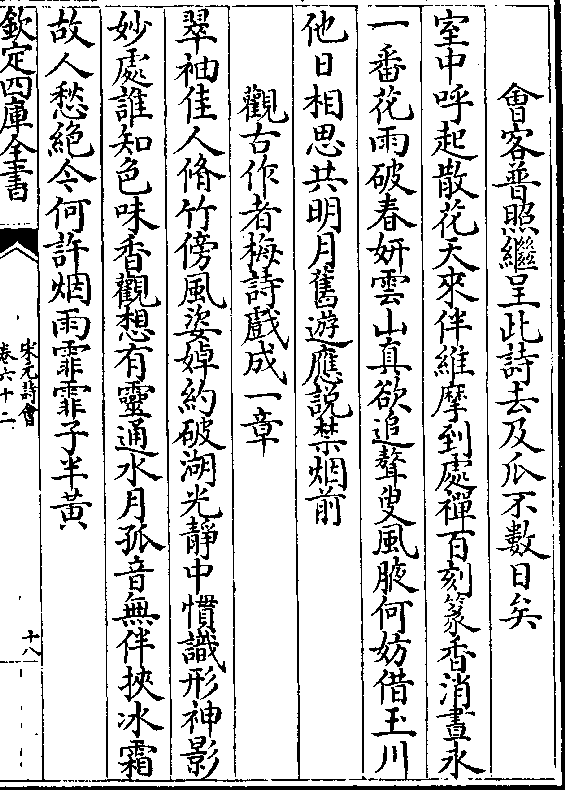 會客普照繼呈此詩去及瓜不數日矣
室中呼起散花天來伴維摩到處禪百刻篆香消晝永
一番花雨破春妍雲山真欲追聱叟風腋何妨借玉川
他日相思共明月舊遊應説禁烟前
觀古作者梅詩戲成一章
翠袖佳人脩竹傍風姿婥約破湖光靜中慣識形神影
妙處誰知色味香觀想有靈通水月孤音無伴挾冰霜
故人愁絶今何許烟雨霏霏子半黃
欽定四庫全書
宋元詩會
卷六十二
十八